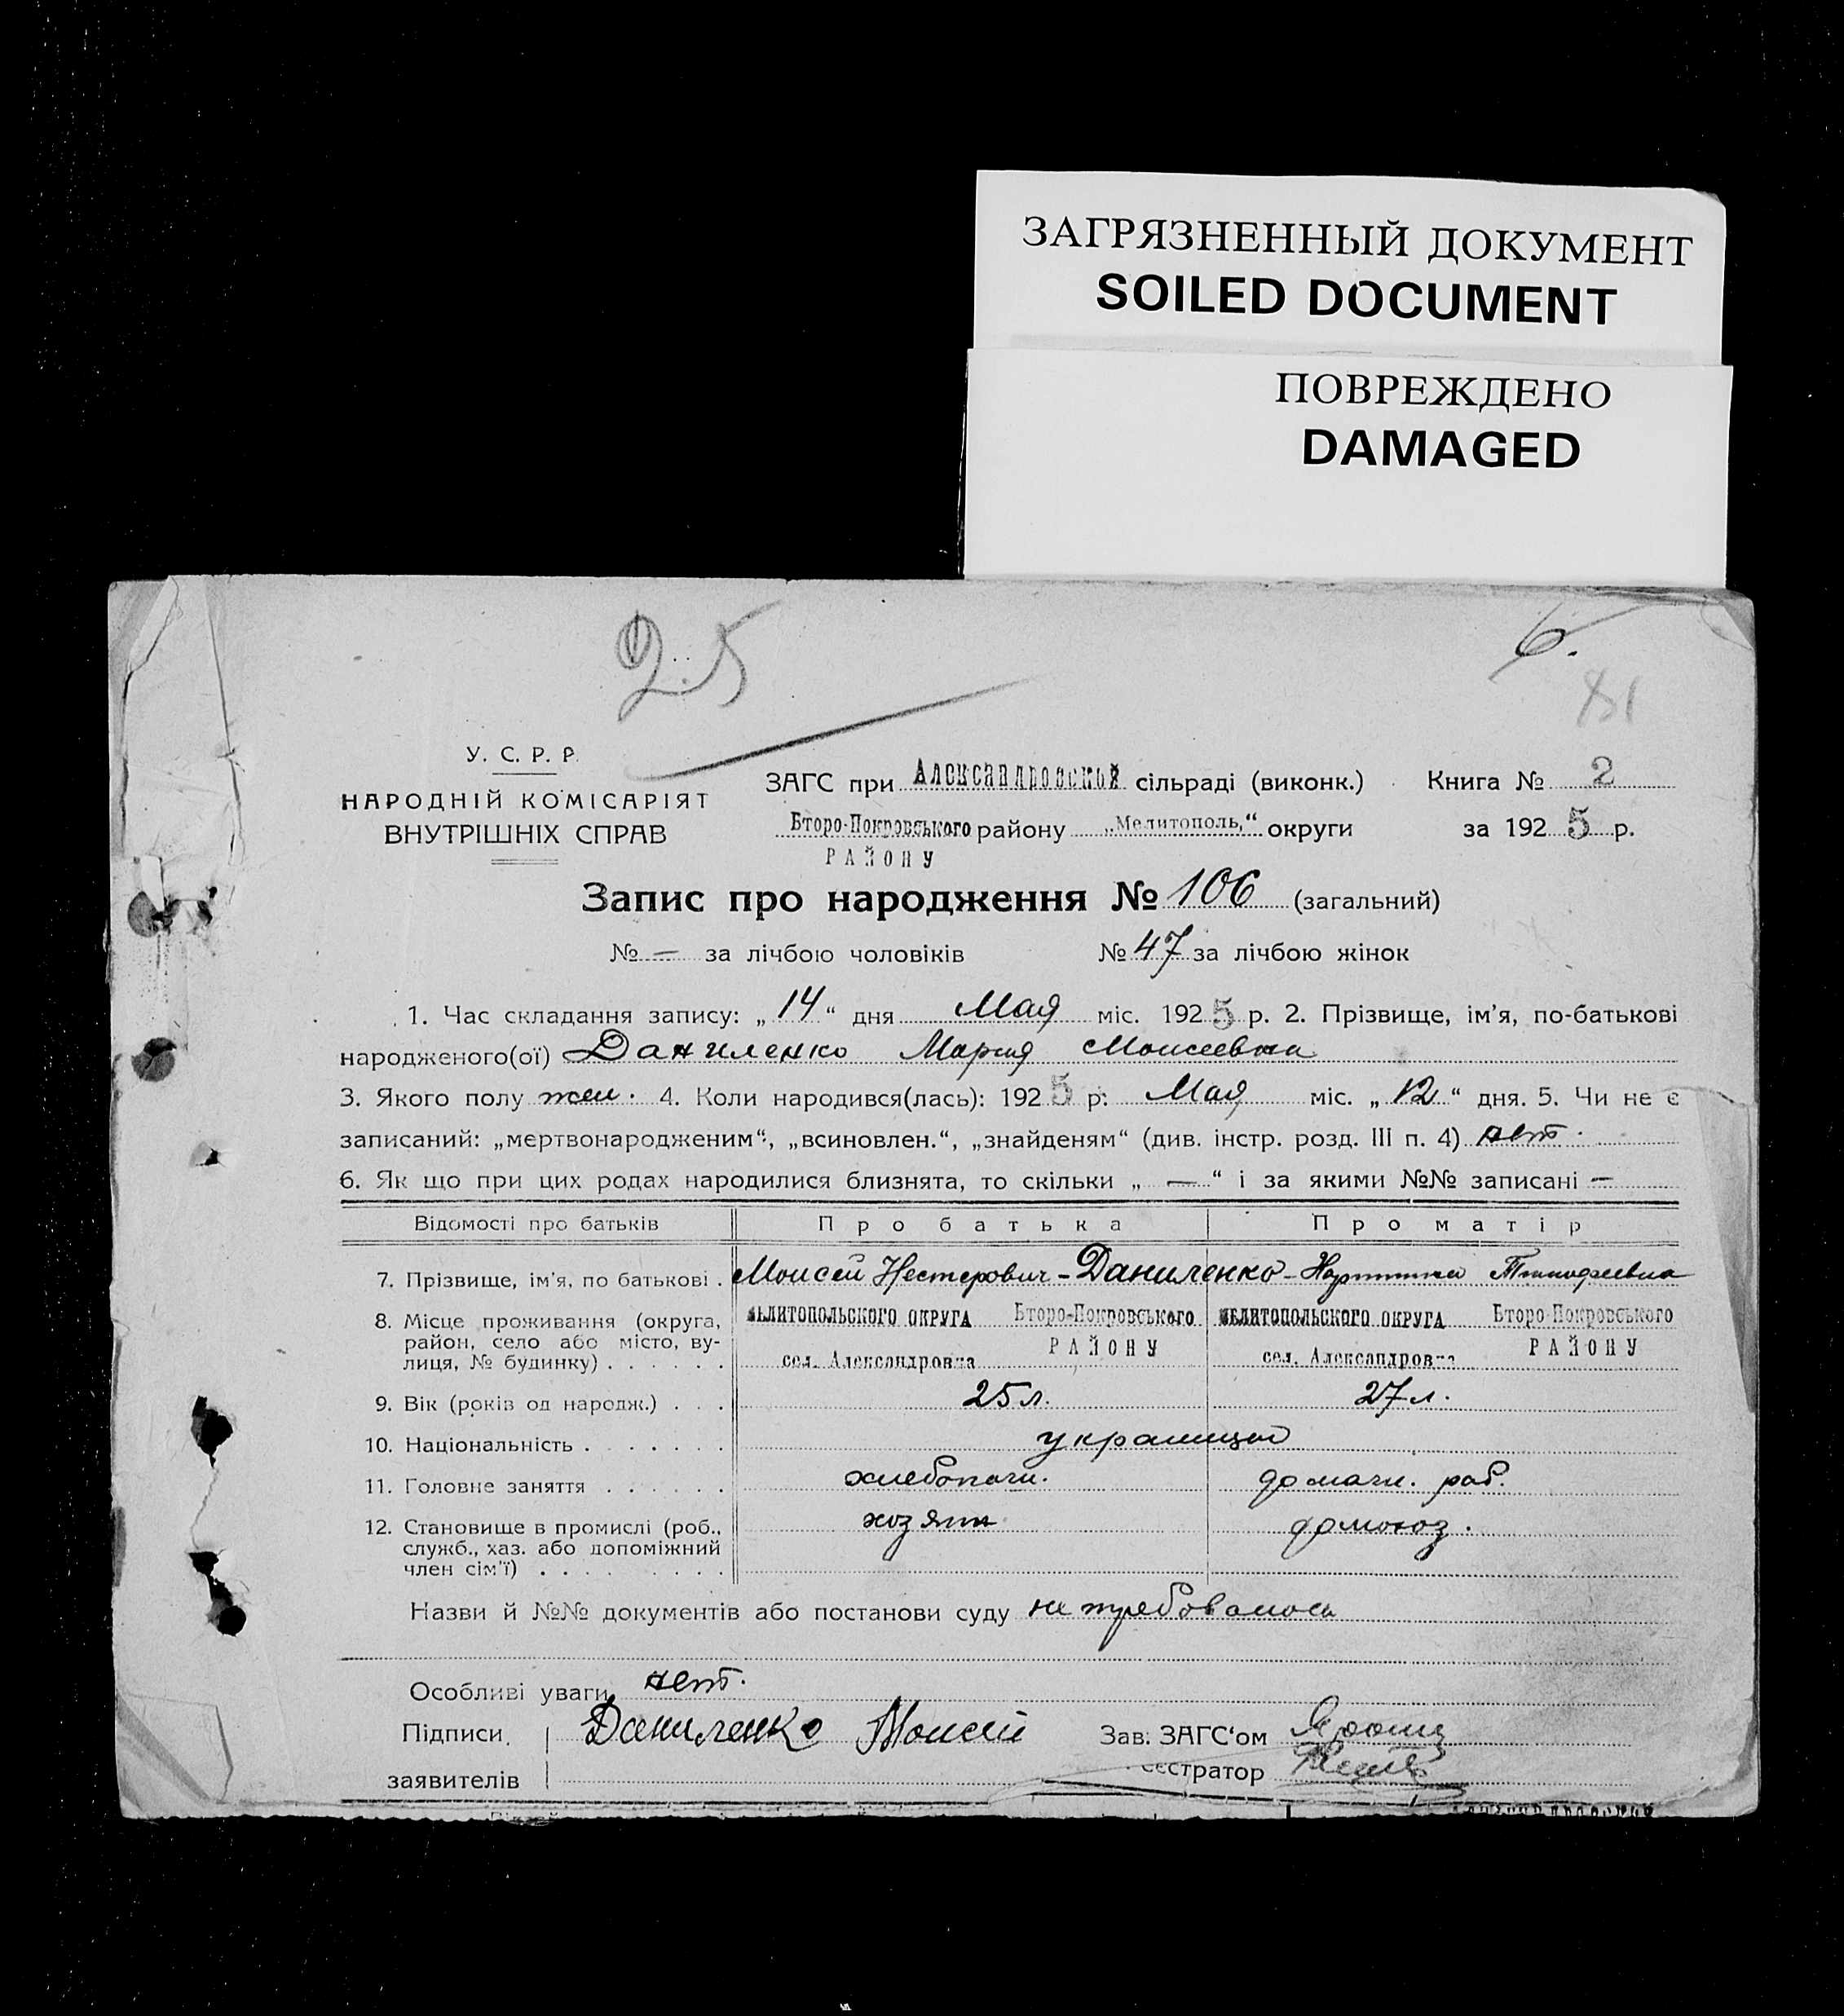 ЗАГРЯЗНЕННЫЙ ДОКУМЕНТ
SOILED DOCUMENT
ПОВРЕЖДЕНО
DAMAGED
25
6.
81
У. С. Р. Р.
НАРОДНІЙ КОМІСАРІЯТ
ВНУТРІШНІХ СПРАВ
ЗАГС при Александровской сільраді (виконк.) Книга № 2
Второ-Покровського району „Мелитополь,“ округи за 1925 р.
РАЙОНУ
Запис про народження № 106 (загальний)
№ — за лічбою чоловіків № 47 за лічбою жінок
1. Час складання запису: „14“ дня Мая міс. 1925 р. 2. Прізвище, ім’я, по-батькові
народженого(ої) Даниленко Мария Моисеевна
3. Якого полу жен. 4. Коли народився(лась): 1925 р: Мая міс. „12“ дня. 5. Чи не є
записаний: „мертвонародженим“, „всиновлен.“, „знайденям“ (див. інстр. розд. III п. 4) нет.
6. Як що при цих родах народилися близнята, то скільки „ — “ і за якими №№ записані —
Відомості про батьків Про батька Про матір
7. Прізвище, ім’я, по батькові . Моисей Нестерович - Даниленко - Тимофеевна
8. Місце проживання (округа, район, село або місто, вулиця, № будинку) . . . . . .
МЕЛИТОПОЛЬСКОГО ОКРУГА Второ-Покровського РАЙОНУ сел. Александровка
МЕЛИТОПОЛЬСКОГО ОКРУГА Второ-Покровського РАЙОНУ сел. Александровка
9. Вік (років од народж.) . . . 25 л. 27 л.
10. Національність . . . . . . . украинцы
11. Головне заняття . . . . . . хлебопаш. домашн. раб.
12. Становище в промислі (роб., служб., хаз. або допоміжний член сім’ї) . . . . . . . . хозяин домохоз.
Назви й №№ документів або постанови суду не требовалось
Особливі уваги нет.
Підписи Даниленко Моисей Зав. ЗАГС‘ом
заявителів єстратор